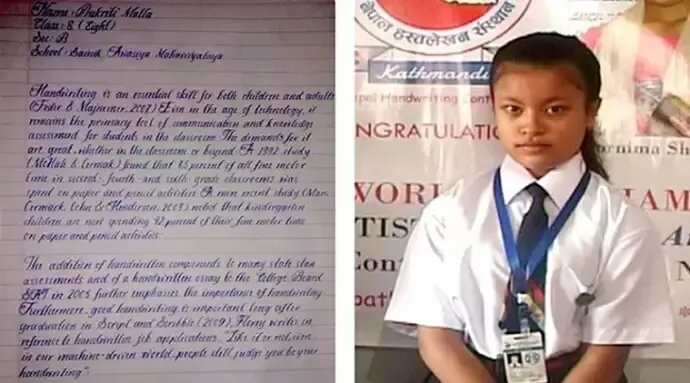 Name: Prakriti Malla
Class: 8 (Eight)
Sec: B
School: Sainik Awasiya Mahavidyalaya
Handwriting is an essential skill for both children and adults
(Feder & Majnemer, 2007). Even in the age of technology, it
remains the primary tool of communication and knowledge
assessment for students in the classroom. The demands for it
are great, whether in the classroom or beyond. A 1992 study
(McHale & Cermak) found that 85 percent of all fine motor
time in second- fourth- and sixth-grade classrooms was
spent on paper and pencil activities. A more recent study (Marr,
Cermark, Cohn & Henderson, 2003) noted that kindergarten
children are now spending 42 percent of their fine motor time
on paper and pencil activities.
The addition of handwritten components to many state stan
assessments and of a handwritten essay to the College Board
SAT in 2005 further emphasis the importance of handwriting
Furthermore, good handwriting is important long after
graduation in Script and Scribble (2009), Florey writes in
reference to handwritten job applications, "Like it or not, even
in our machine-driven world, people still judge you by your
handwriting".
नेपाल हस्तलेखन संस्थान
Kathmandu
Nepal Handwriting Cont
ONGRATULATI
rnima Sh
WORL
HAM
TIST
Con